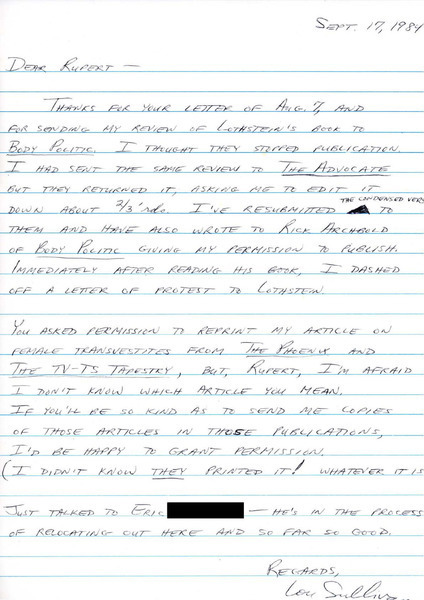 SEPT. 17, 1984
DEAR RUPERT —
THANKS FOR YOUR LETTER OF AUG. 7, AND
FOR SENDING MY REVIEW OF LOTHSTEIN'S BOOK TO
BODY POLITIC. I THOUGHT THEY STOPPED PUBLICATION.
I HAD SENT THE SAME REVIEW TO THE ADVOCATE
BUT THEY RETURNED IT, ASKING ME TO EDIT IT
THE CONDENSED VERS
DOWN ABOUT 2/3'rds. I'VE RESUBMITTED TO
THEM AND HAVE ALSO WROTE TO RICK ARCHBOLD
OF BODY POLITIC GIVING MY PERMISSION TO PUBLISH.
IMMEDIATELY AFTER READING HIS BOOK, I DASHED
OFF A LETTER OF PROTEST TO LOTHSTEIN.
YOU ASKED PERMISSION TO REPRINT MY ARTICLE ON
FEMALE TRANSVESTITES FROM THE PHOENIX AND
THE TV-TS TAPESTRY, BUT, RUPERT, I'M AFRAID
I DON'T KNOW WHICH ARTICLE YOU MEAN.
IF YOU'LL BE SO KIND AS TO SEND ME COPIES
OF THOSE ARTICLES IN THOSE PUBLICATIONS,
I'D BE HAPPY TO GRANT PERMISSION.
(I DIDN'T KNOW THEY PRINTED IT! WHATEVER IT IS
JUST TALKED TO ERIC — HE'S IN THE PROCESS
OF RELOCATING OUT HERE AND SO FAR SO GOOD.
REGARDS,
Lou Sullivan